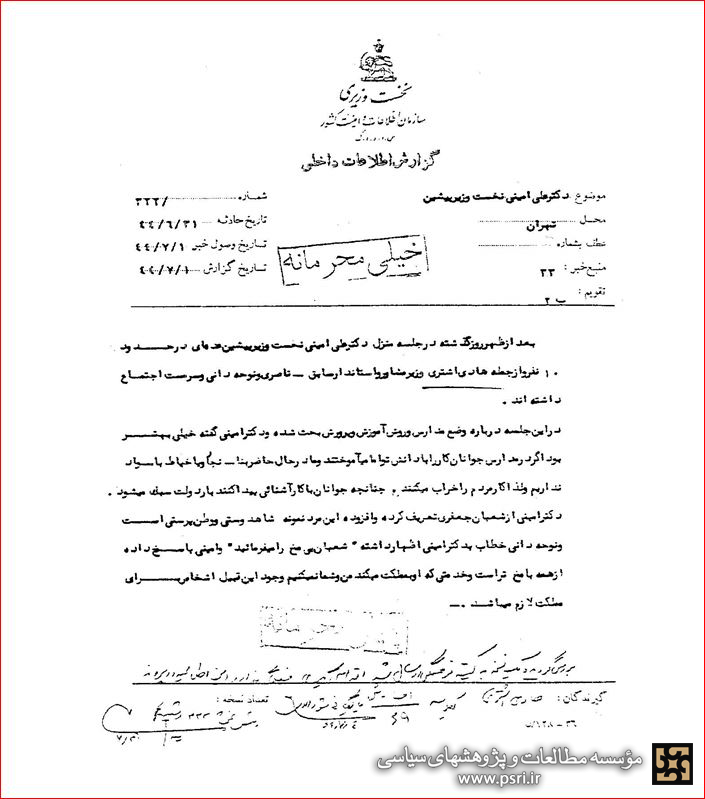 نخست وزیری
سازمان اطلاعات و امنیت کشور
س.ا.و.ا.ک
گزارش اطلاعات داخلی
موضوع دکترعلی امینی نخست وزیرپیشین
شماره /۳۲۲
محل تهران
تاریخ حادثه ۴۴/۶/۳۱
عطف بشماره
تاریخ وصول خبر ۴۴/۷/۱
منبع خبر : ۳۳
تاریخ گزارش ۴۴/۷/۱
تقویم : ب ۲
خیلی محرمانه
بعد ازظهرروزگذشته درجلسه منزل دکترعلی امینی نخست وزیرپیشین عده‌ای درحدود
۱۰ نفروازجمله هادی اشتری وزیرمشاورواستاندارسابق – ناصری ونوحه دانی وسرمست اجتماع
داشته اند .
دراین جلسه درباره وضع مدارس وروش آموزش وپرورش بحث شده ودکترامینی گفته خیلی بهتر
بود اگردرمدارس جوانان کاررابادانش تواما میآموختند ومادرحال حاضربنا – نجارویاخیاط باسواد
نداریم ولذا کارمردم راخراب میکنند و چنانچه جوانان باکارآشنائی پیداکنند باردولت سبك میشود .
دکترامینی ازشعبان جعفری تعریف کرده وافزوده این مرد نمونه شاهدوستی ووطن پرستی است
ونوحه دانی خطاب بدکترامینی اظهارداشته " شعبان بی مخ رامیفرمائید " وامینی پاسخ داده
ازهمه بامخ تراست وخدمتی که اوبمملکت میکند من وشمانمیکنیم وجود این قبیل اشخاص برای
مملکت لازم میباشد . –
خیلی محرمانه
گیرندگان :
تعداد نسخه :
مؤسسه مطالعات و پژوهشهای سیاسی
www.psri.ir